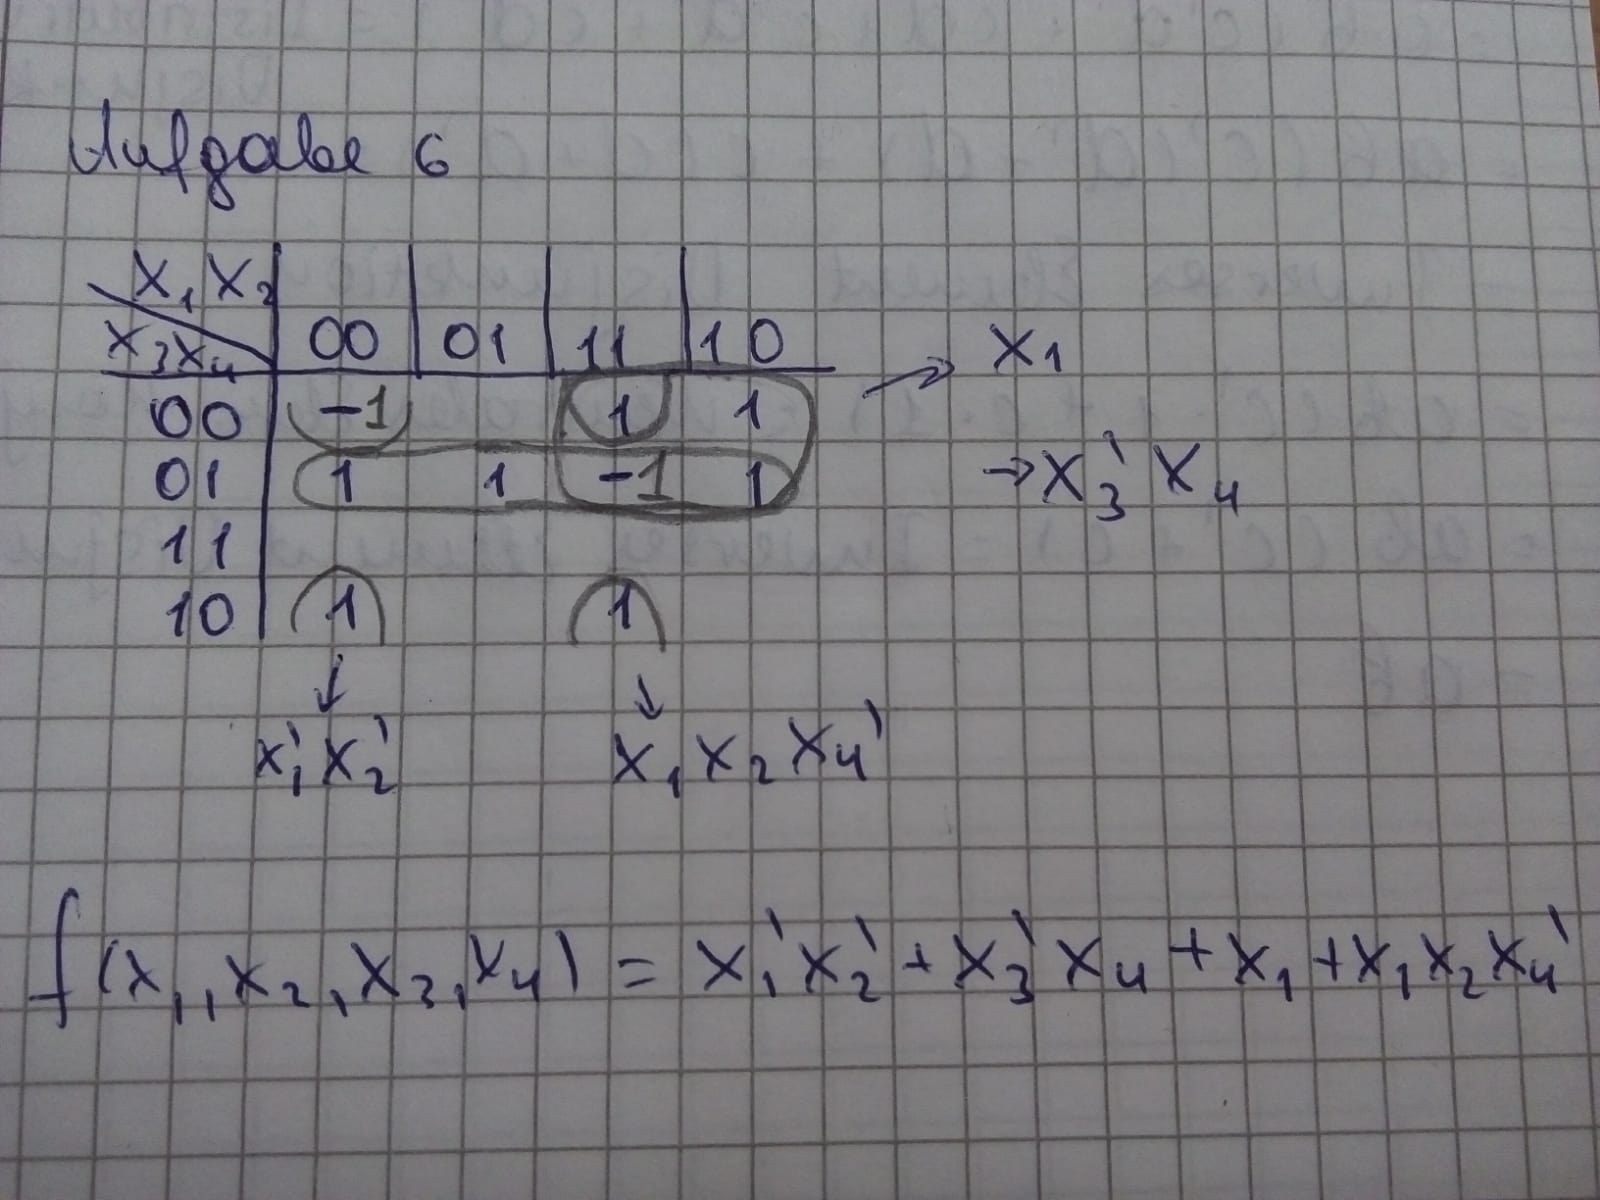 Aufgabe 6
x₁ x₂
x₃x₄ 00 01 11 10 → x₁
00 -1 1 1
01 1 1 -1 1 → x₃' x₄
11
10 1 1
↓ ↓
x₁' x₂' x₁ x₂ x₄'
f(x₁, x₂, x₃, x₄) = x₁' x₂' + x₃' x₄ + x₁ + x₁ x₂ x₄'